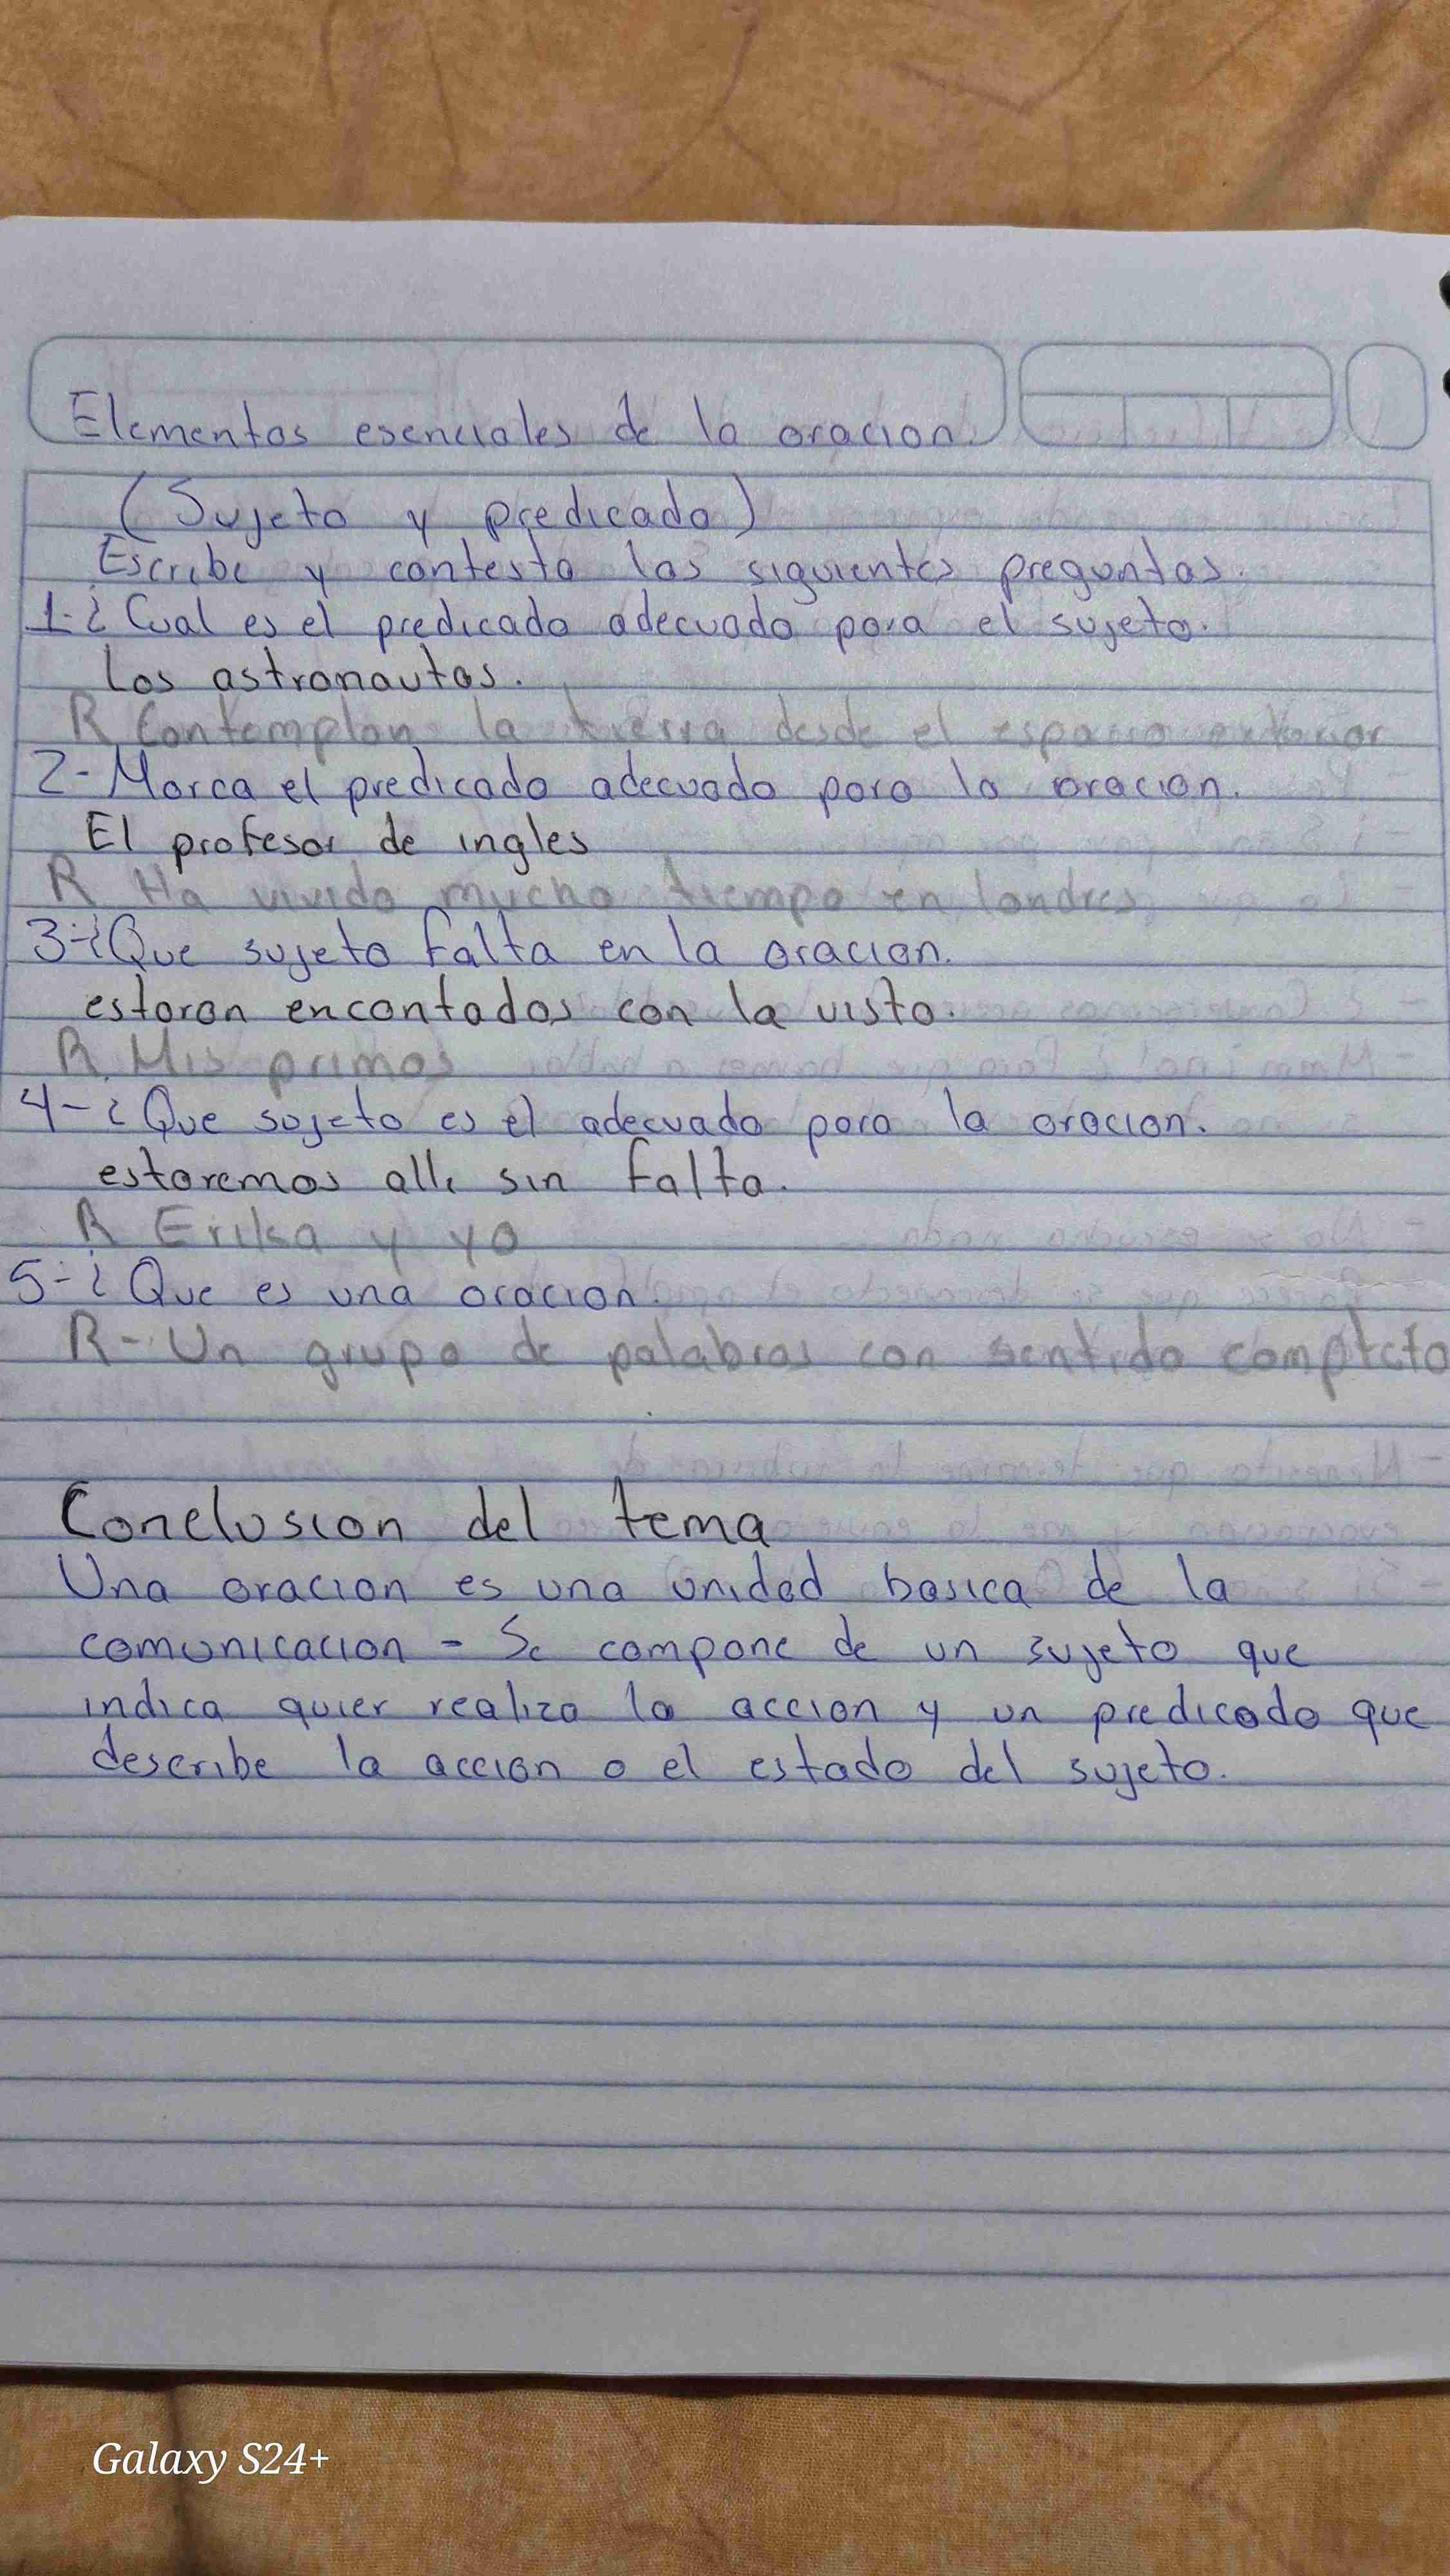 Elementos esenciales de la oracion.
(Sujeto y predicado)
Escribe y contesta las siguientes preguntas.
1-¿ Cual es el predicado adecuado para el sujeto.
Los astronautas.
R Contemplan la tierra desde el espacio exterior
2- Marca el predicado adecuado para la oracion.
El profesor de ingles
R Ha vivido mucho tiempo en londres
3-¿Que sujeto falta en la oracion.
estaran encantados con la visto.
R. Mis primos
4-¿ Que sujeto es el adecuado para la oracion.
estaremos alli sin falta.
R Erika y yo
5-¿ Que es una oracion.
R- Un grupo de palabras con sentido completo
Conclusion del tema
Una oracion es una unidad basica de la
comunicacion - Se compone de un sujeto que
indica quier realiza la accion y un predicado que
describe la accion o el estado del sujeto.
Galaxy S24+